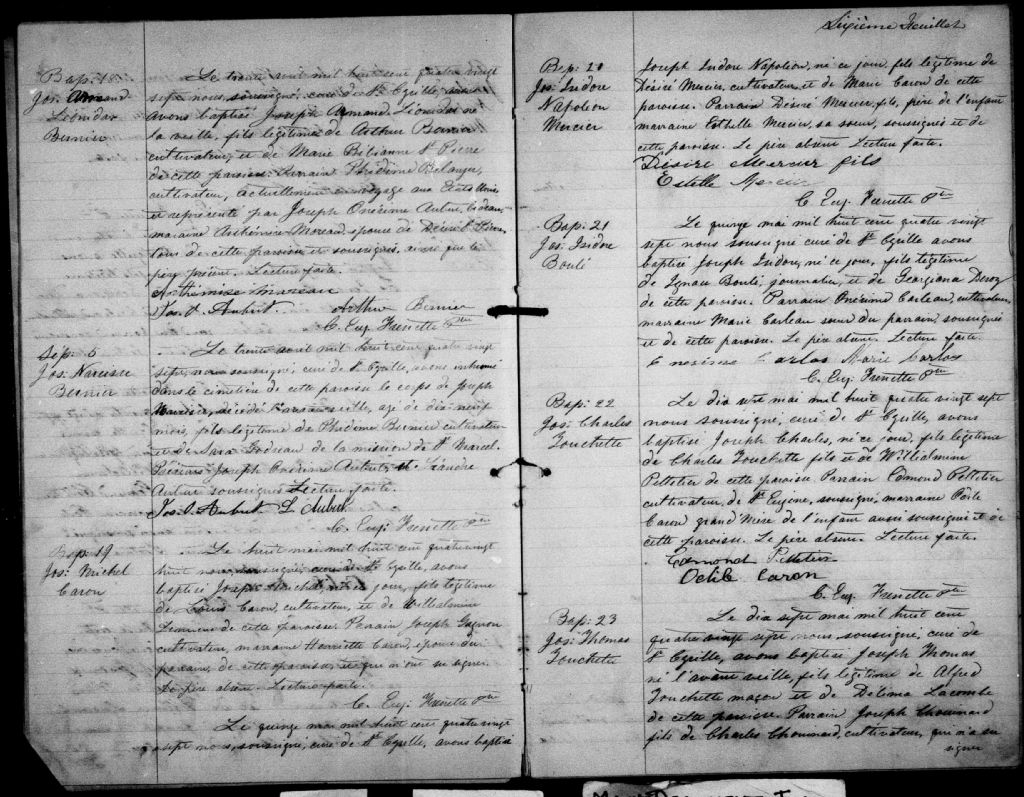 Bap: 18
Jos: Armand
Léonidas
Bernier
Le trente avril mil huit cent quatre vingt
sept nous, soussigné, curé de St Cyrille, avons
baptisé Joseph Armand Léonidas né
la veille, fils légitime de Arthur Bernier
cultivateur, et de Marie Bibianne St Pierre
de cette paroisse. Parrain Phidime Belanger,
cultivateur, actuellement en voyage aux Etats Unis
et représenté par Joseph Onésime Aubut, bedeau,
marraine Arthémise Moreau épouse de Désiré
tous de cette paroisse et soussignés, ainsi que le
père présent. Lecture faite.
Arthémise Moreau
Jos. O. Aubut. Arthur Bernier
C. Eug. Frenette Ptre
Sep: 6
Jos: Narcisse
Bernier
Le trente avril mil huit cent quatre vingt
sept, nous, soussigné, curé de St Cyrille, avons inhumé
dans le cimetière de cette paroisse le corps de Joseph
Narcisse, décédé l'avant veille, agé de dix neuf
mois, fils légitime de Phidime Bernier cultivateur
et de Sara Godreau de la mission de St Marcel.
Présents Joseph Onésime Aubut, et Léandre
Aubut soussignés. Lecture faite.
Jos. O. Aubut L Aubut
C. Eug. Frenette Ptre
Bap: 19
Jos: Michel
Caron
Le huit mai mil huit cent quatre vingt
sept nous, soussigné, curé de St Cyrille, avons
baptisé Joseph Michel, né ce jour, fils légitime
de Louis Caron, cultivateur, et de Willialmine
de cette paroisse. Parrain Joseph Gagnon
cultivateur, marraine Henriette Caron, épouse du
parrain, de cette paroisse, et qui n'ont su signer.
Le père absent. Lecture faite.
C. Eug. Frenette Ptre
Le quinze mai mil huit cent quatre vingt
sept nous, soussigné, curé de St Cyrille, avons baptisé
Sixième Feuillet
Bap: 20
Jos: Isidore
Napoléon
Mercier
Joseph Isidore Napoléon, né ce jour, fils légitime de
Désiré Mercier, cultivateur, et de Marie Caron de cette
paroisse. Parrain Désiré Mercier, fils, frère de l'enfant
marraine Esthelle Mercier, sa soeur, soussignés et de
cette paroisse. Le père absent. Lecture faite.
Désiré Mercier fils
Estelle Mercier
C. Eug. Frenette Ptre
Bap: 21
Jos: Isidore
Boulé
Le quinze mai mil huit cent quatre vingt
sept nous soussigné curé de St Cyrille avons
baptisé Joseph Isidore, né ce jour, fils légitime
de Ignace Boulé, journalier, et de Georgiana
de cette paroisse. Parrain Onésime Carleau, cultivateur,
marraine Marie Carleau soeur du parrain, soussignés
et de cette paroisse. Le père absent. Lecture faite.
Onesime Carlos Marie Carlos
C. Eug. Frenette Ptre
Bap: 22
Jos: Charles
Fouchette
Le dix sept mai mil huit quatre vingt sept
nous soussigné, curé de St Cyrille, avons
baptisé Joseph Charles, né ce jour, fils légitime
de Charles Fouchette fils et de Willialmine
Pelletier de cette paroisse. Parrain Edmond Pelletier
cultivateur, de St Eugène, soussigné, marraine Odile
Caron grand'Mère de l'enfant aussi soussignée et de
cette paroisse. Le père absent. Lecture faite.
Edmond Pelletier
Odile Caron
C. Eug. Frenette Ptre
Bap: 23
Jos: Thomas
Fouchette
Le dix sept mai mil huit cent
quatre vingt sept nous, soussigné, curé de
St Cyrille, avons baptisé Joseph Thomas
né l'avant veille, fils légitime de Alfred
Fouchette maçon et de Délima Lacombe
de cette paroisse. Parrain Joseph Chouinard
fils de Charles Chouinard, cultivateur, qui n'a su
signer